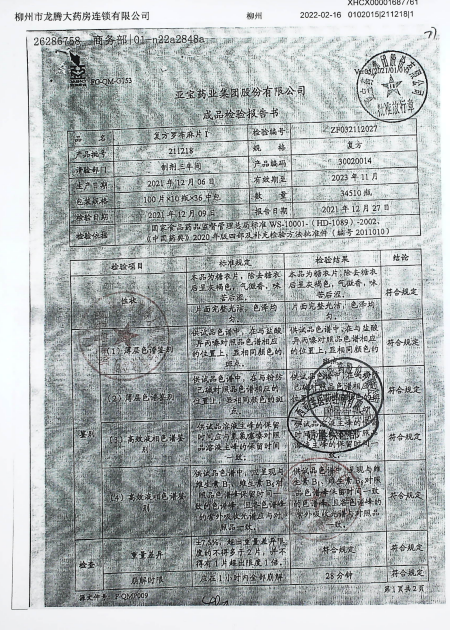 XHCX00001687761
柳州市龙腾大药房连锁有限公司 柳州 2022-02-16 0102015|211218|1
26286758 商务部|01-n22a2848a
PO-QM-G153
亚宝药业集团股份有限公司
成品检验报告书
品 名 复方罗布麻片Ⅰ 检验编号 ZP032112027
产品批号 211218 规 格 复方
请验部门 制剂三车间 产品编码 30020014
生产日期 2021年12月06日 有效期至 2023年11月
包装规格 100片×10瓶×36中包 数 量 34510瓶
检验日期 2021年12月09日 报告日期 2021年12月27日
检验依据 国家食品药品监督管理总局标准WS-10001-(HD-1089)-2002、
《中国药典》2020年版四部及补充检验方法批准件(编号2011010)
检验项目 标准规定 检验结果 结论
性状 本品为糖衣片,除去糖衣后显灰褐色,气微香,味苦后涩。 本品为糖衣片,除去糖衣后显灰褐色,气微香,味苦后涩。 符合规定
片面完整光洁,色泽均匀。 片面完整光洁,色泽均匀。
鉴别 (1)薄层色谱鉴别 供试品色谱中,在与盐酸异丙嗪对照品色谱相应的位置上,显相同颜色的斑点。 供试品色谱中,在与盐酸异丙嗪对照品色谱相应的位置上,显相同颜色的斑点。 符合规定
(2)薄层色谱鉴别 供试品色谱中,在与粉防己碱对照品色谱相应的位置上,显相同颜色的斑点。 符合规定
(3)高效液相色谱鉴别 供试品溶液主峰的保留时间应与氢氯噻嗪对照品溶液主峰的保留时间一致。 符合规定
(4)高效液相色谱鉴别 供试品色谱中,应呈现与维生素B₁、维生素B₆对照品色谱峰保留时间一致的色谱峰,且各色谱峰的紫外吸收光谱应与对照品一致。 供试品色谱中,呈现与维生素B₁、维生素B₆对照品色谱峰保留时间一致的色谱峰,且各色谱峰的紫外吸收光谱与对照品一致。 符合规定
检查 重量差异 ±7.5%,超出重量差异限度的不得多于2片,并不得有1片超出限度1倍。 符合规定 符合规定
崩解时限 应在1小时内全部崩解 28分钟 符合规定
源文件号: P-QMP009 第1页共2页